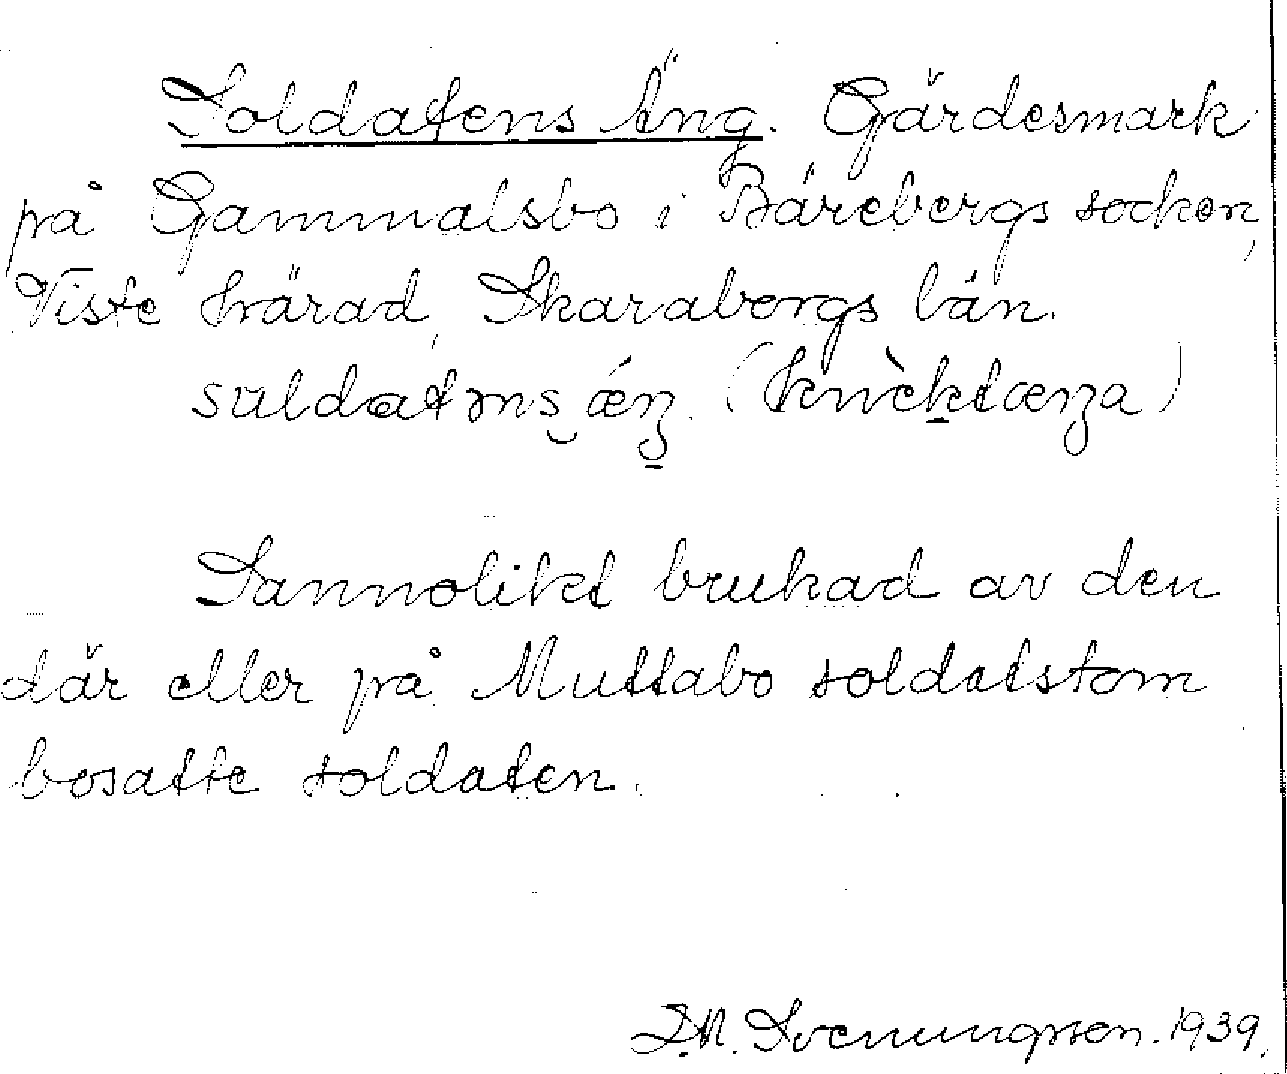 Soldatens Äng. Gärdesmark
på Gammalsbo i Bärebergs socken,
Viste härad, Skarabergs län.
suldatɷns ǽŋ. (knὲktæŋa)
Sannolikt brukad av den
där eller på Muttabo soldatstom
bosatte soldaten.
Svenungsson. 1939.